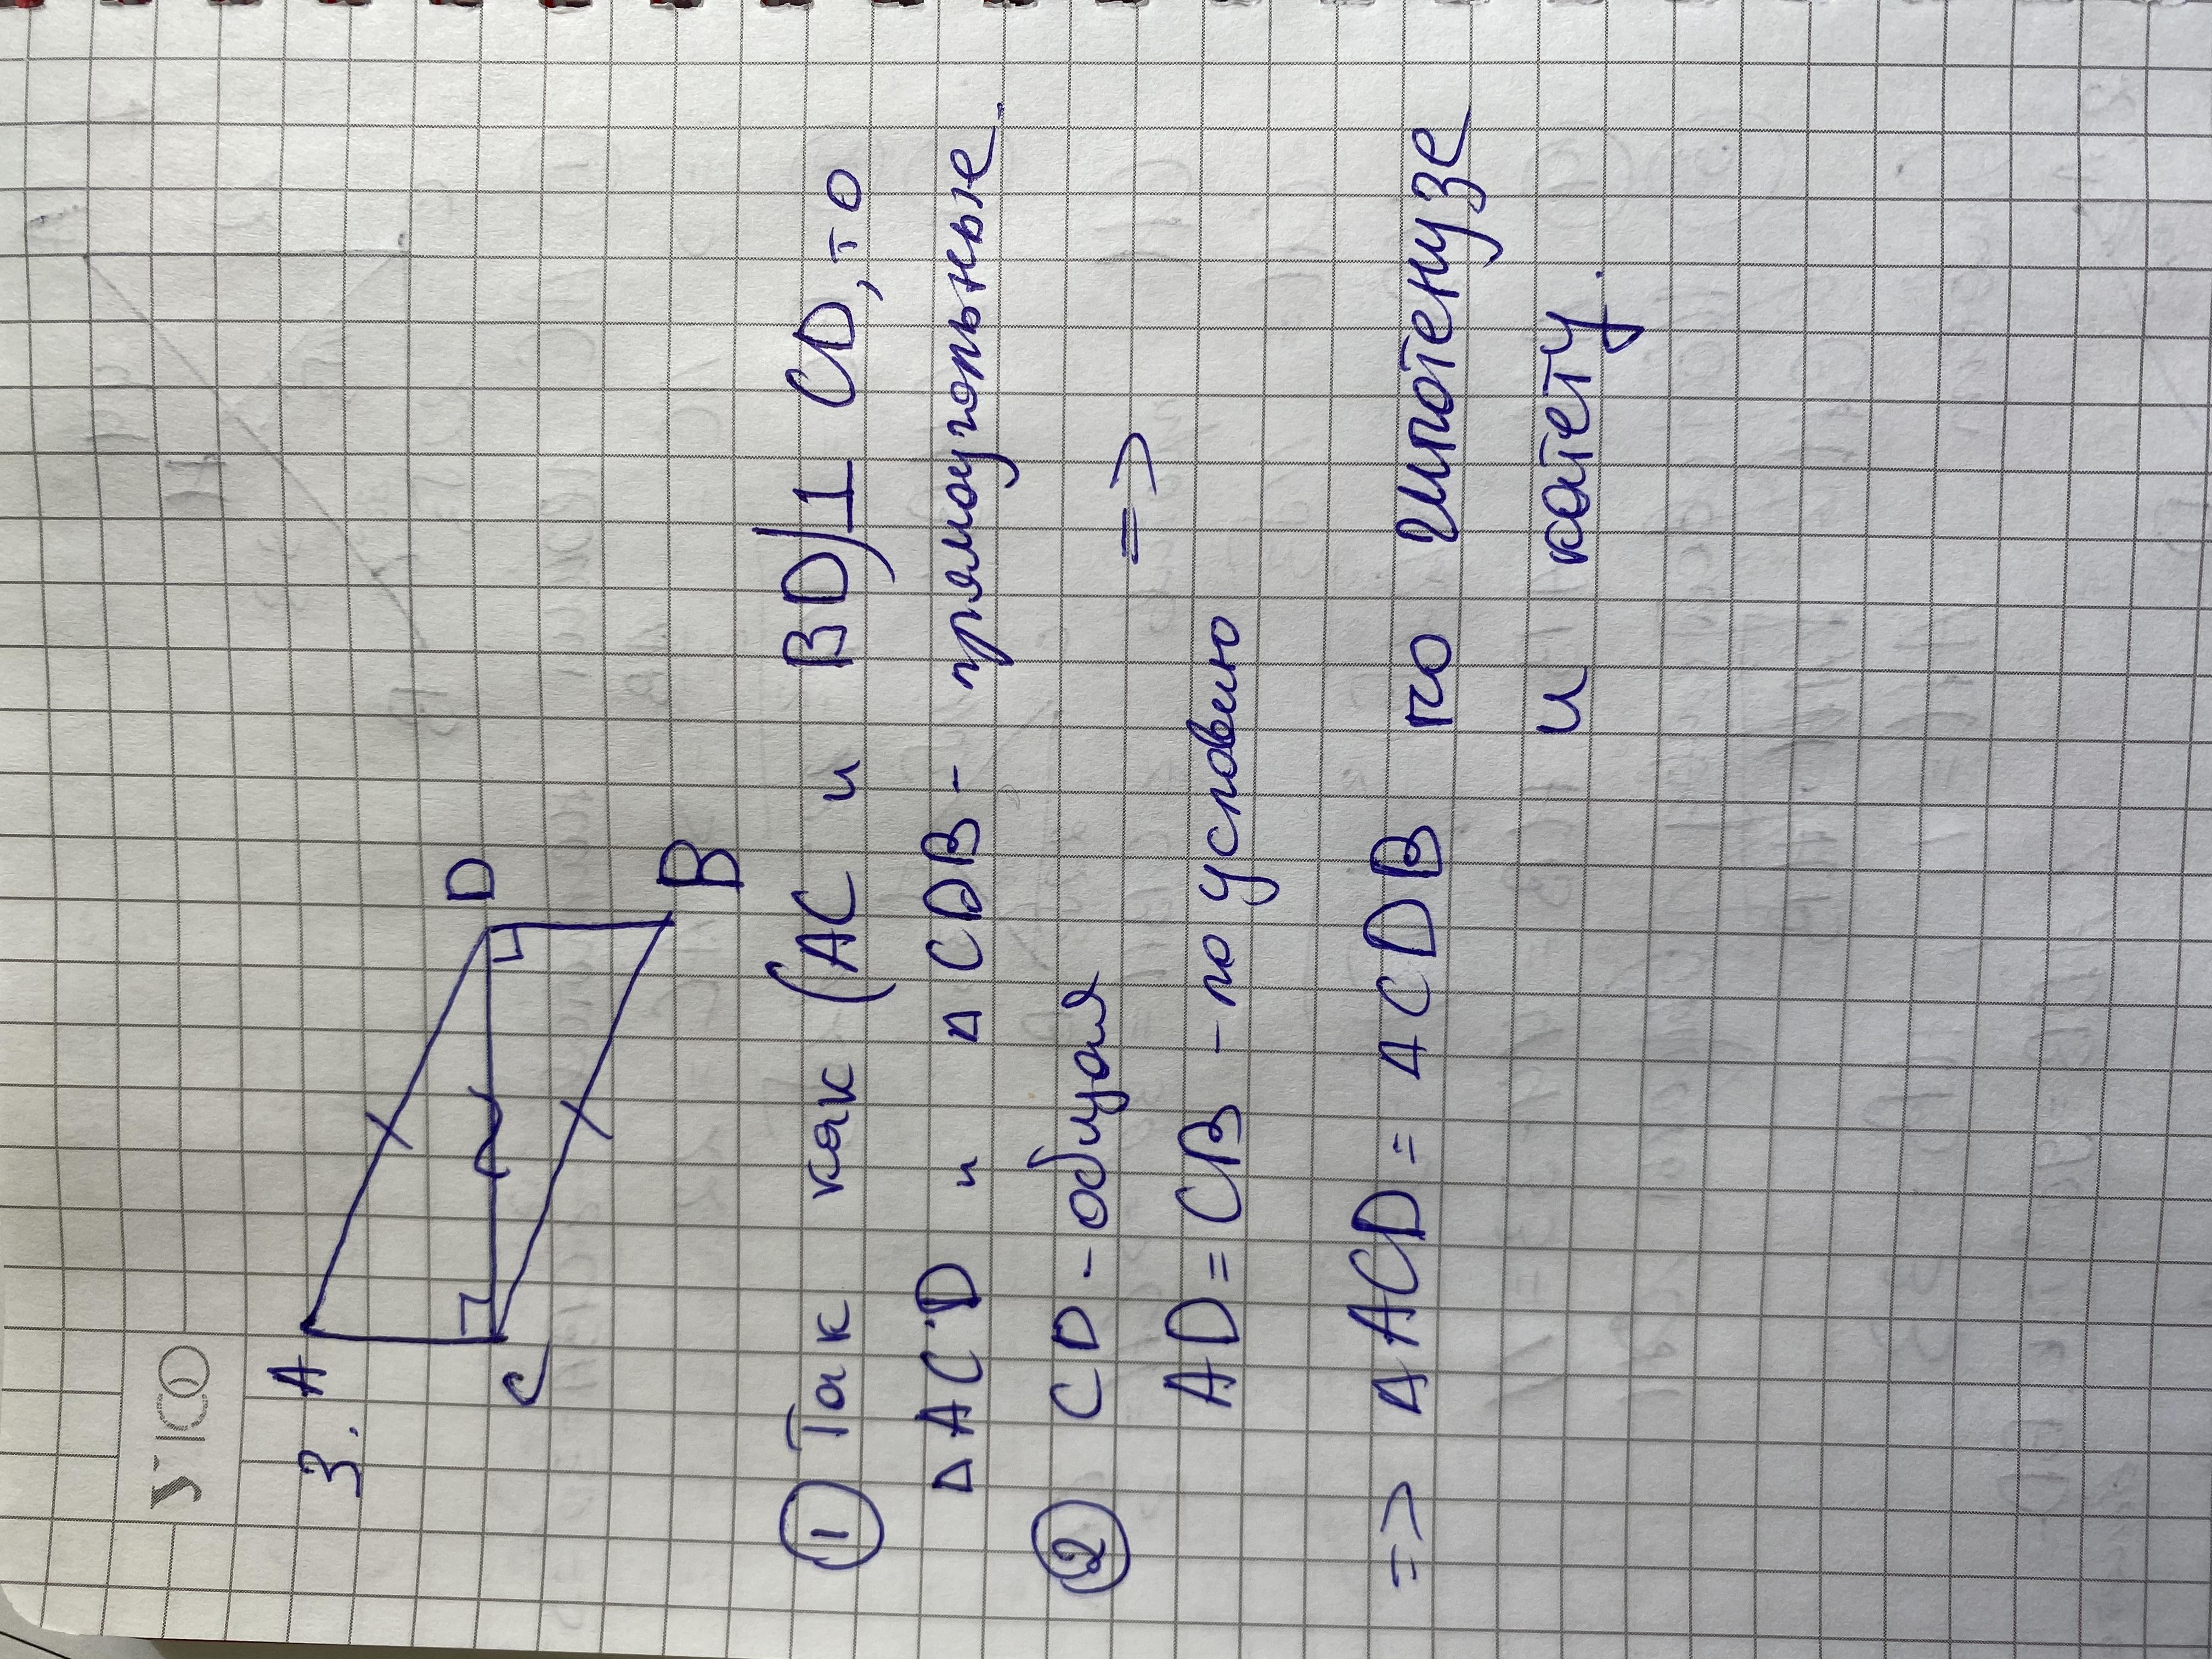 3.
A
D
C
B
① Так как (AC и BD) ⊥ CD, то
△ ACD и △ CDB - прямоугольные.
② CD - общая
=>
AD = CB - по условию
=> △ ACD = △ CDB по гипотенузе
и катету.